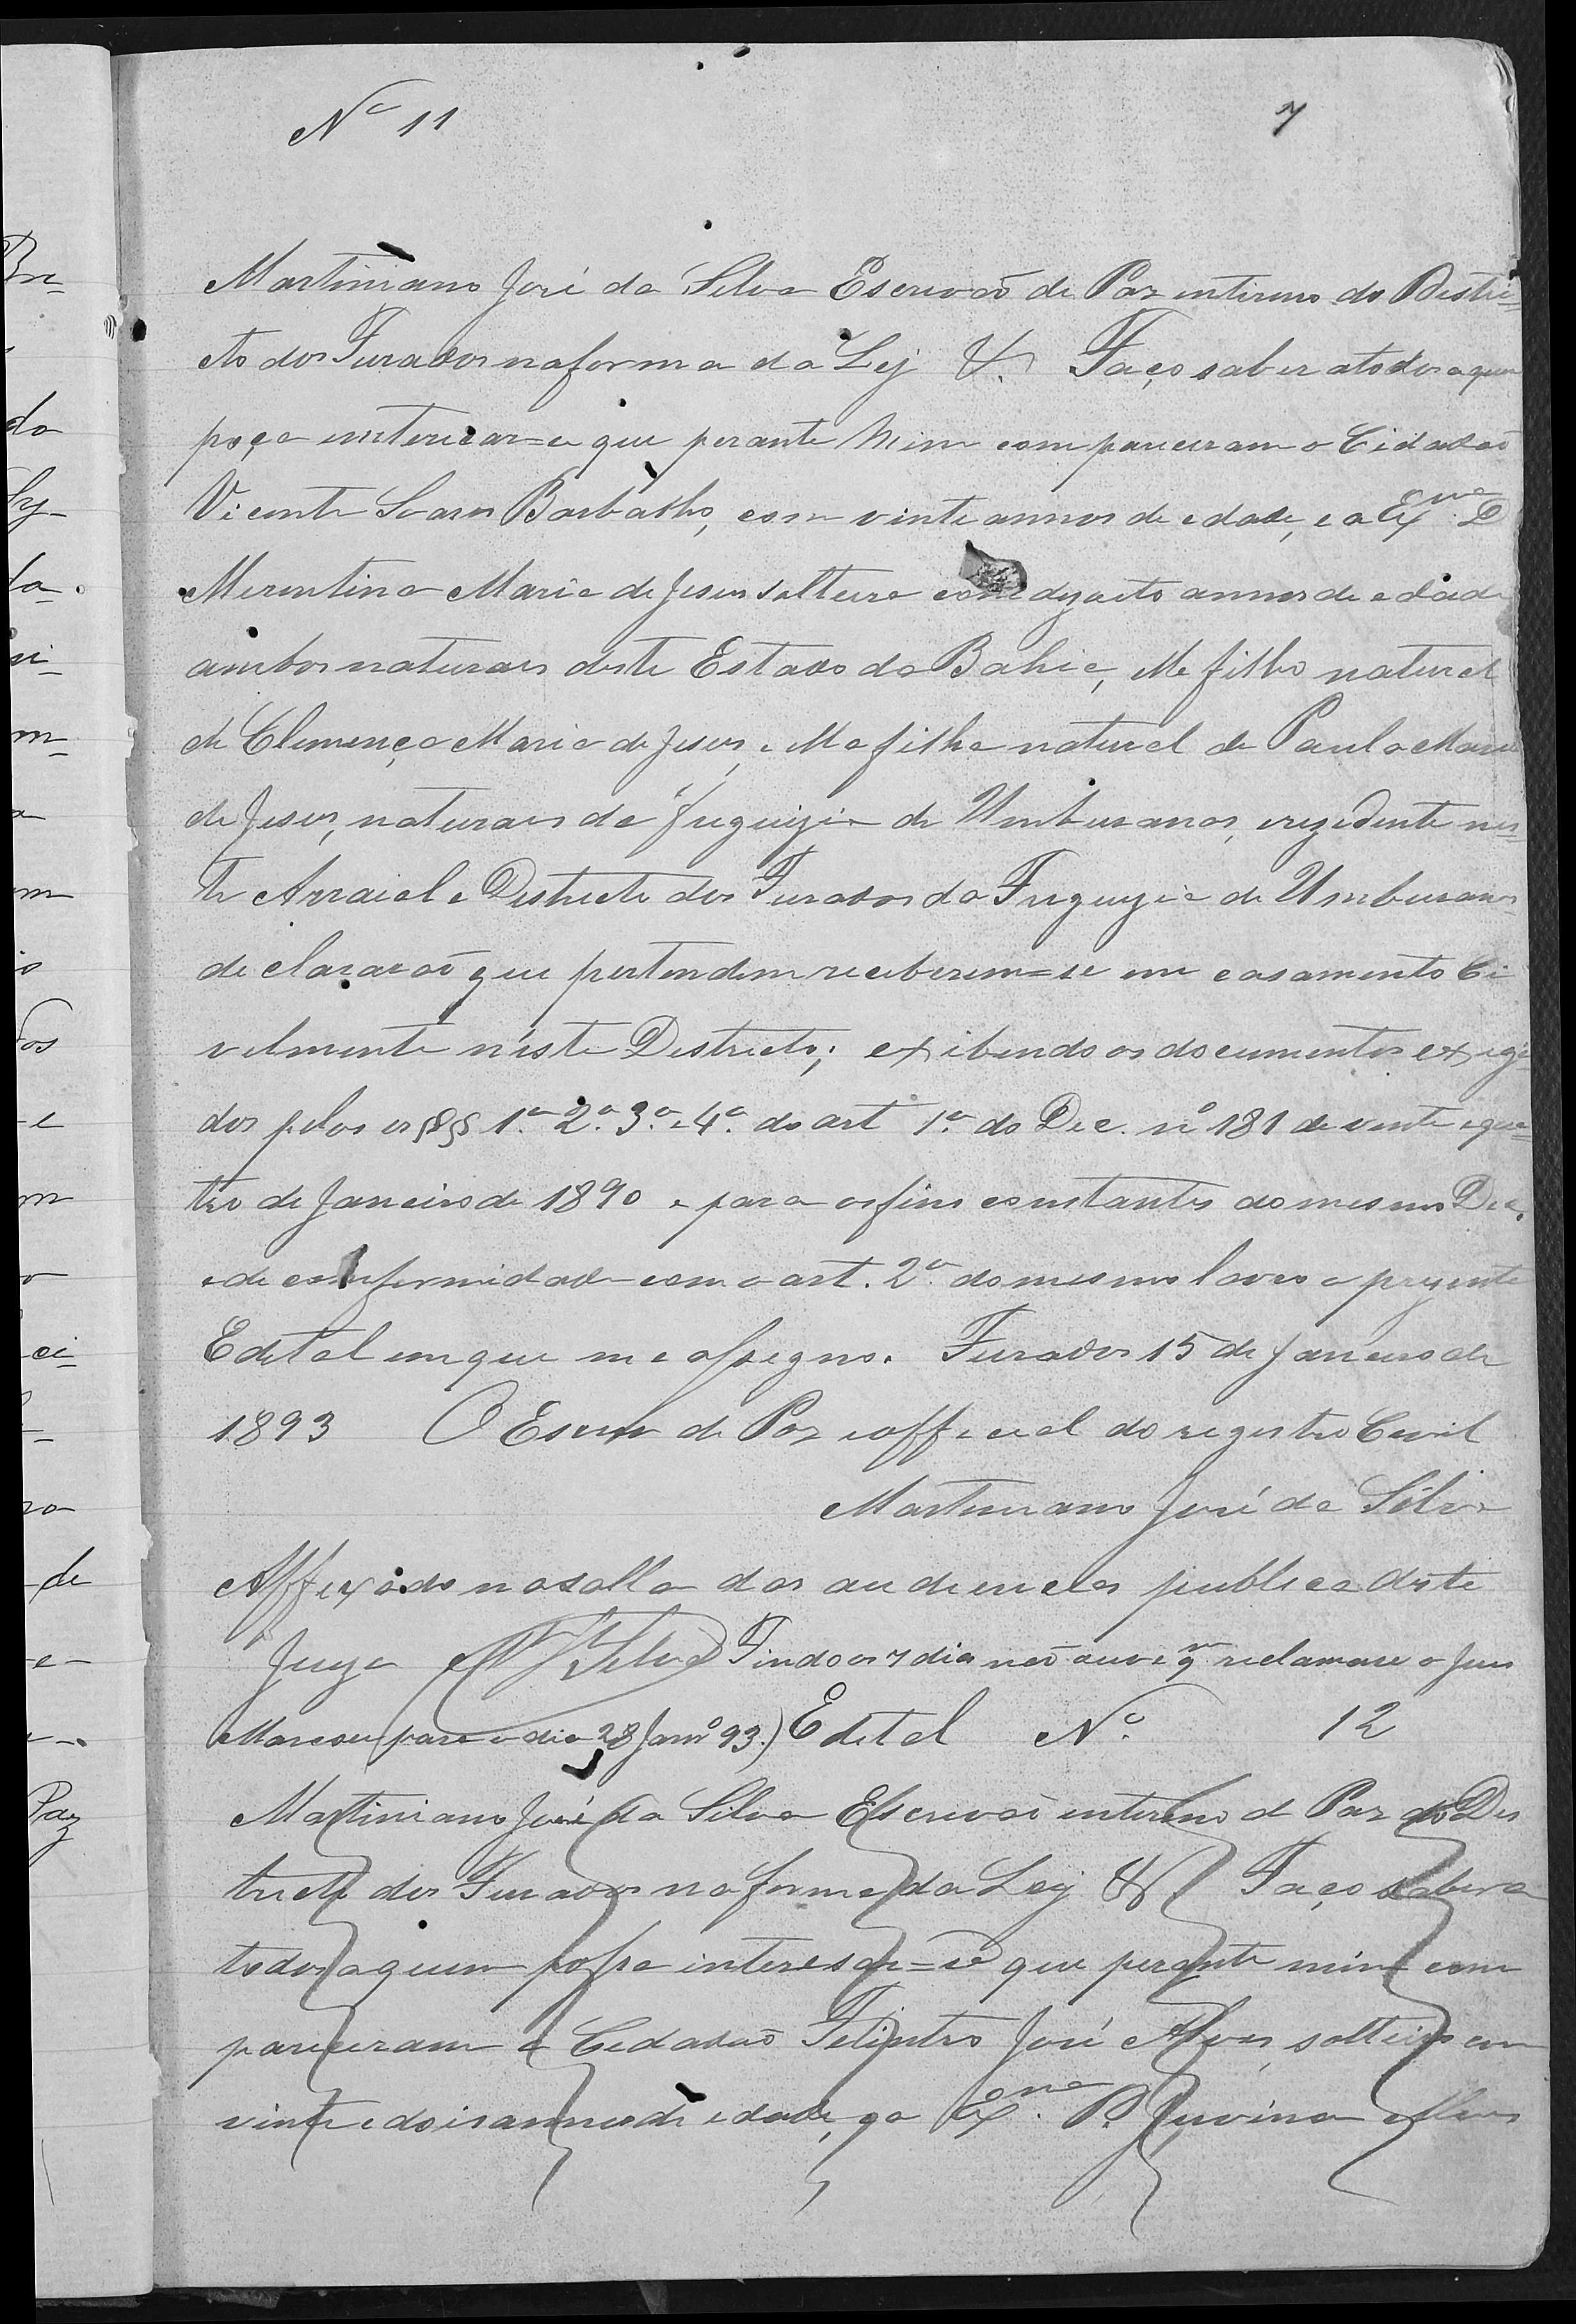 Nº 11
7
Martiniano José da Silva Escrivaõ de Paz interino do Distri=
cto dos Furados na forma da Ley &. Faço saber a todos a quem
poça intericar=ce que perante mim compareceram o Cidadaõ
Vicente Soares Barbalho, com vinte annos de edade, e a Exmª D
Merentina Maria de Jesus solteira com dezoito annos de edade
ambos naturaes deste Estado da Bahia, Elle filho natural
de Clemença Maria de Jesus, e Ella filha natural de Paula Maria
de Jesus, naturaes da freguizia de Umburanas, rezidente nes=
te Arraial e Districto dos Furados da Freguizia de Umburanas
declararaõ que pertendem receberem=se em casamento Ci
vilmente n'este Districto; exibindo os documentos exigi
dos pelos os §§§ 1º 2º 3º e 4º do art 1º do Dec. nº 181 de vinte e qua=
tro de Janeiro de 1890 e para os fins constantes do mesmo Dec.
e de conformidade com o art. 2º do mesmo lavro o prezente
Edital em que me assigno. Furados 15 de Janeiro de
1893 O Escrm de Paz e official do registro Civil
Martiniano José da Silva
Affixado na salla das audiencias publica deste
Juizo MJSilva Findo os 7 dia naõ ouve qm reclamace o Juis
Marcou para o dia 28 Janrº 93.) Edital Nº 12
Martiniano José da Silva Escrivaõ interino de Paz do Dis
tricto dos Furados na forma da Ley & Faço saber a
todos a quem possa interesar=se que perante mim com
pareceram o Cidadaõ Felintro José Alves, solteiro com
vinte e dois annos de edade, ea Exmª. D. Juvina Alves